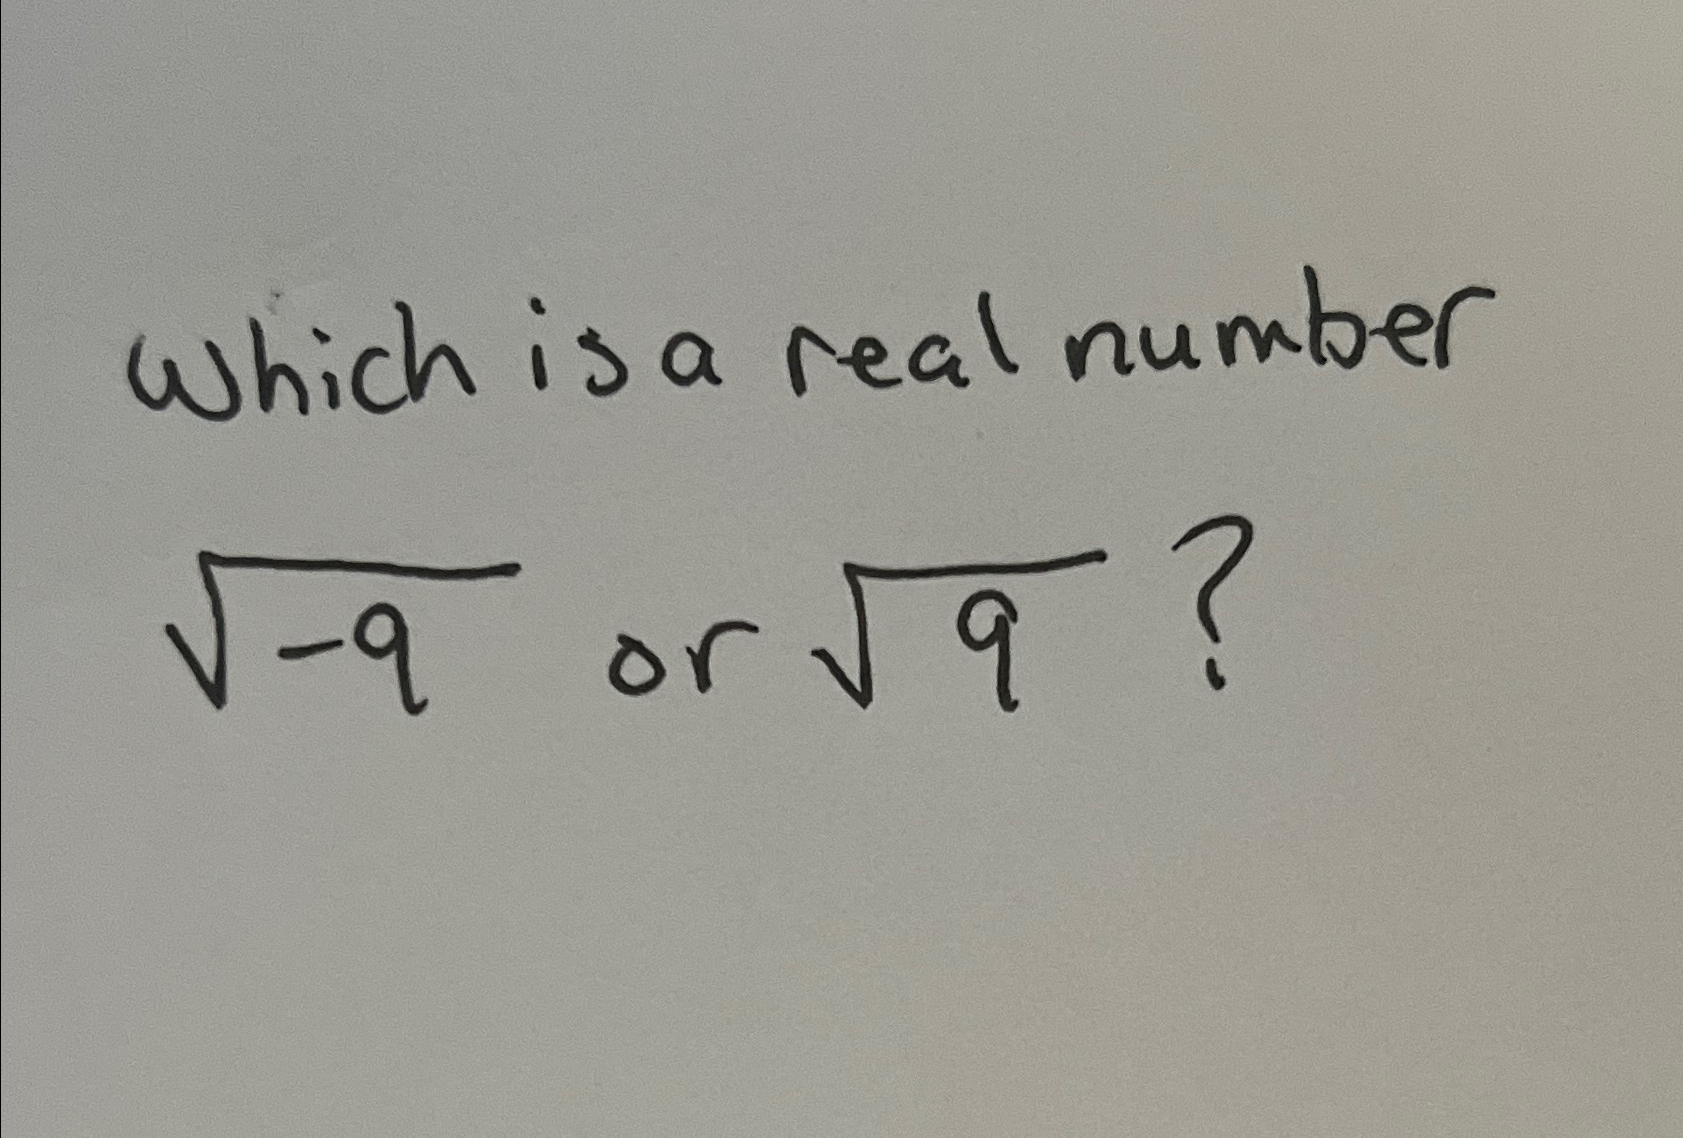 Which is a real number
√-9 or √9 ?